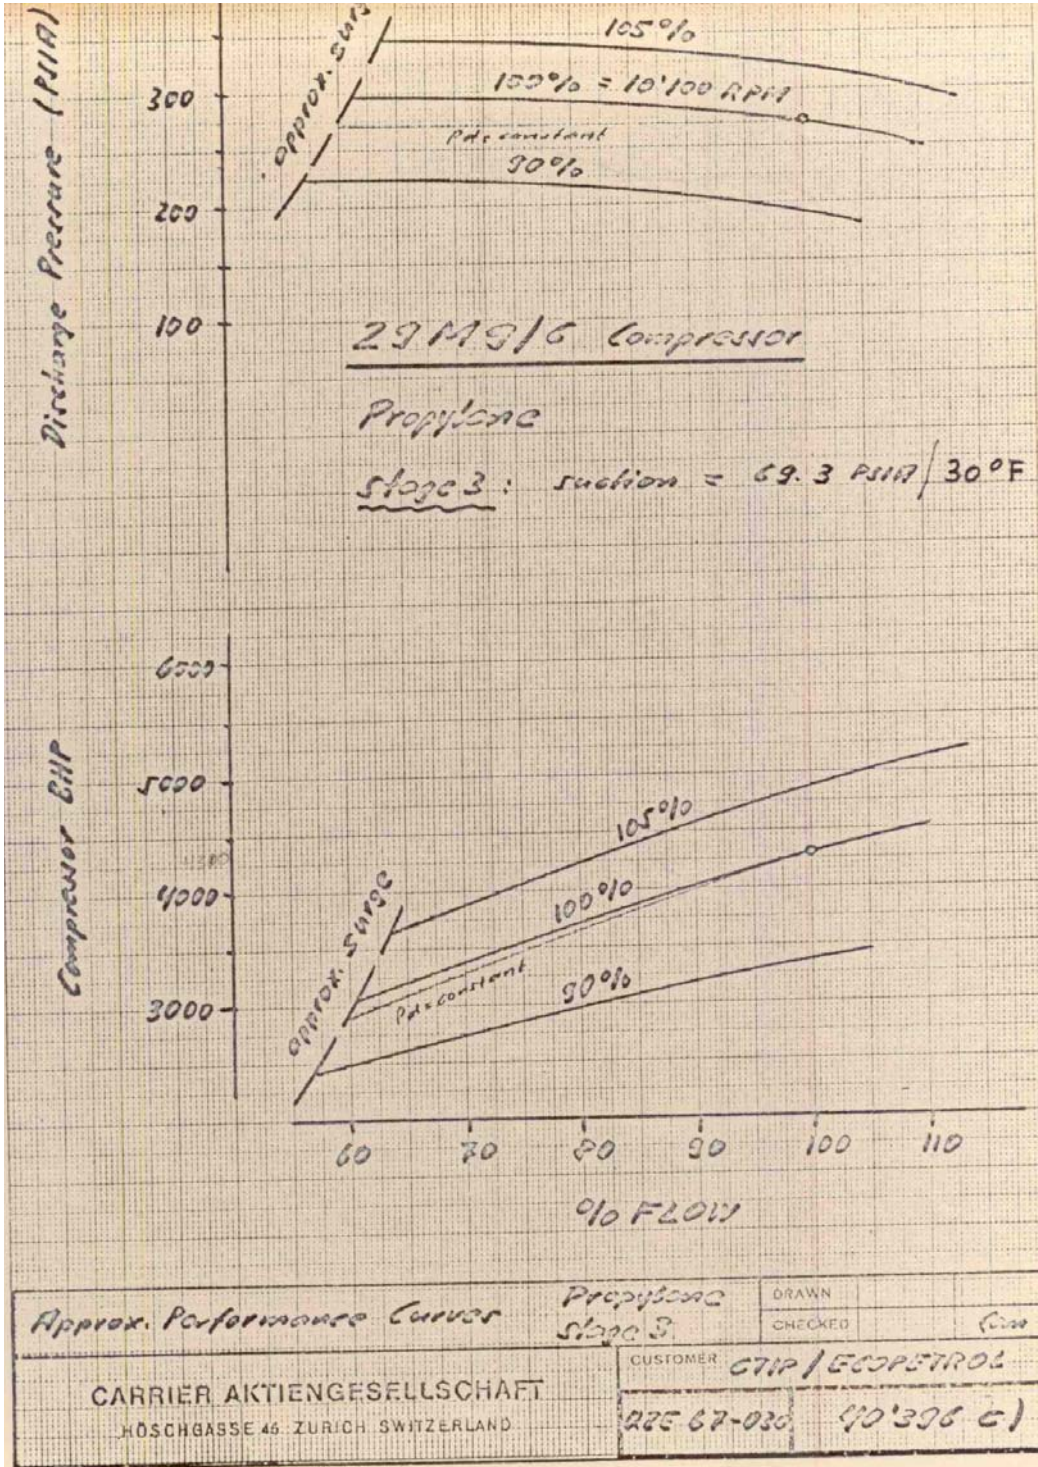 Discharge Pressure (PSIA)
300
200
100
approx. surg
105%
100% = 10'100 RPM
Pd=constant
90%
29M9/6 Compressor
Propylene
Stage 3: suction = 69.3 PSIA/30°F
Compressor BHP
6000
5000
4000
3000
approx. surge
105%
100%
Pd=constant
90%
60 70 80 90 100 110
% FLOW
Approx. Performance Curves
Propylene
Stage 3
DRAWN
CHECKED
CARRIER AKTIENGESELLSCHAFT
HÖSCHGASSE 46 ZURICH SWITZERLAND
CUSTOMER CTIP / ECOPETROL
67-030
40'396 c)